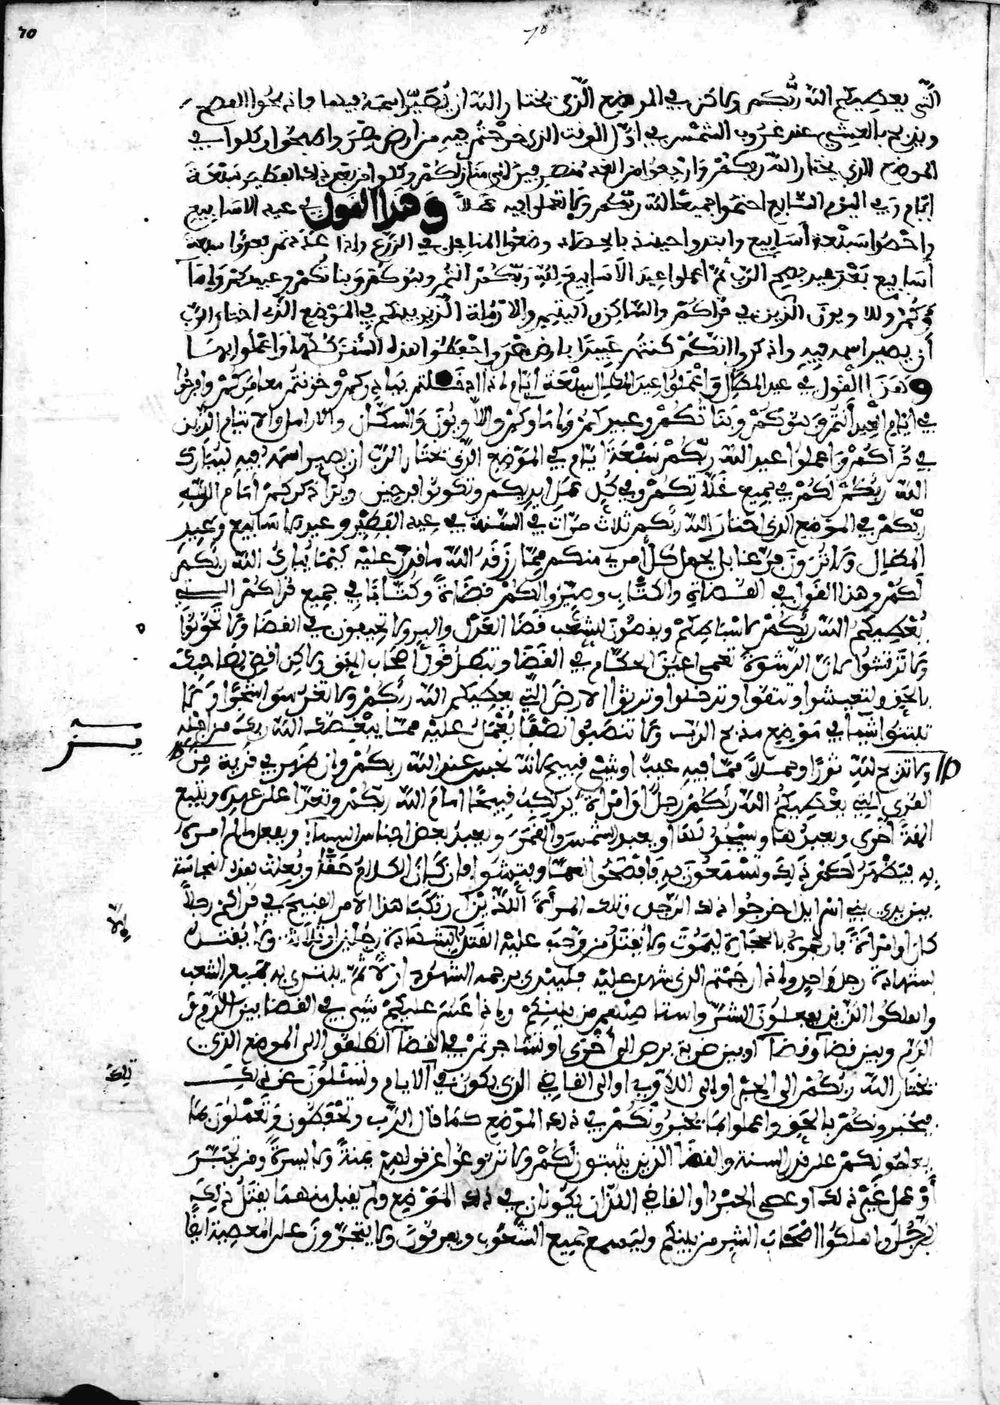 70
70
التي يعطيكم الله ربكم ولاكن في الموضع الذي يختار الله ان يصير اسمه فيه هاهنا فاذبحوا الفصح
وبالعشي عند غروب الشمس في اول الوقت الذي خرجتم فيه من ارض مصر واطبخوا وكلوا في
الموضع الذي يختار الله ربكم وارجعوا من الغد الى منازلكم وكلوا فطير ستة
ايام وفي اليوم السابع اجتمعوا جميعا لله ربكم ولا تعملوا فيه عملا وهذا القول في عيد الاسابيع
واحصوا سبعة اسابيع وابتدوا حينئذ بالحصاد وضعوا المناجل في الزرع واذا عددتم سبعة
اسابيع عيد الرب ثم اعملوا عيد الاسابيع لله ربكم انتم وبنوكم وبناتكم وعبيدكم واما
وكم وللاويون الذين في قراكم والساكن واليتيم والارملة الذين بينكم في الموضع الذي اختار الرب
ان يصير اسمه فيه واذكروا انكم كنتم عبيدا بارض مصر واحفظوا هذه السنن كلها واعملوا بها
وهذا القول في عيد المظال واعملوا عيد المظال سبعة ايام اذا ادخلتم بيادركم وخزنتم معاصركم وافرحوا
في ايام العيد انتم وبنوكم وبناتكم وعبيدكم واماوكم واللاويون والسكان والارامل والايتام الذين
في قراكم واعملوا عيد الله ربكم سبعة ايام في الموضع الذي يختار الرب ان يصير اسمه فيه ليبارك
الله ربكم لكم في جميع غلاتكم وفي كل عمل ايديكم وتكونوا فرحين ذكركم امام الله
ربكم في الموضع الذي اختار الله ربكم ثلاث مرات في السنة في عيد الفطير وعيد الاسابيع وعيد
المظال ولا ترون بل يحمل كل امرء منكم مما رزقه الله ما قدر عليه كما يبارك الله ربكم
لكم وهذا القول في القضاة والكتاب وصيروا لكم قضاة وكتابا في جميع قراكم التي
يعطيكم الله ربكم لاسباطكم ويقضون للشعب قضا العدل والبر ولا تحيفون في القضا ولا تحوبوا
ولا ترتشوا لان الرشوة تعمي اعين الحكام في القضا وتبطل قول اصحاب الحق ولاكن اقضي يا صاحبي
بالحق ولتعيشوا وتبقوا وتدخلوا وترثوا الارض التي يعطيكم الله ربكم ولا تغرسوا شجرا ولا
تثبتوا شيا في موضع مذبح الرب ولا تنصبوا نصبا يعمل عليه مما يبغضه الله ربك
ولا تذبح لله ثورا وحملا مما فيه عيب او شي قبيح لانه نجس عند الله ربكم وان ظهر في قرية من
القرى التي يعطيكم الله ربكم رجل او امراة يرتكب قبيحا امام الله ربكم وتعدا على عهده ويتبع
الهة اخرى ويعبدها ويسجد لها او يعبد الشمس والقمر ويعبد بعض اجناد السما ويفعل ما لم امره
به فيظهر لكم ذلك وتسمعون به فافحصوا فحصا وفتشوا فان كان الكلام حقا وفعلت هذه النجاسة
بين بني اسرايل اخرجوا ذلك الرجل وتلك المراة اللذين ارتكبا هذا الامر القبيح في قراكم رجلا
كان او امراة فارجموه بالحجارة ليموت ولا يقتل من وجب عليه القتل الا بشهادة رجلين او ثلاثة ولا يقتل
بشهادة رجل واحد واذا ارجمتم الذي شهد عليه فليبتدي برجمه الشهود اولا ثم يدنس به جميع الشعب
واهلكوا الذين يعملون الشر واستاصلوهم من بينكم واذا عسر عليكم شي في القضا بين الدم
الدم وبين قضا وقضا او بين ضربة برص الى اخرى او تشاجرتم في القضا انطلقوا الى الموضع الذي
يختار الله ربكم الى الحبر او الى اللاوي او الى القاضي الذي يكون في الايام وتسئلون عن ذلك
فيخبرونكم بالحق واعملوا بما يخبرونكم في ذلك الموضع كما قال الرب وتحفظون وتعملون بما
يعلمونكم على قدر السنة والقضا الذين يبينون لكم ولا تزوغوا عن قولهم يمنة ولا يسرة ومن تجبر
او عمل غير ذلك او عصى الحبر او القاضي اللذان يكونان في ذلك الموضع ولم يقبل منهما يقتل ذلك
الرجل واهلكوا اصحاب الشر من بينكم وليسمع جميع الشعوب ويعرفون ولا يتجرون على المعصية ايضا